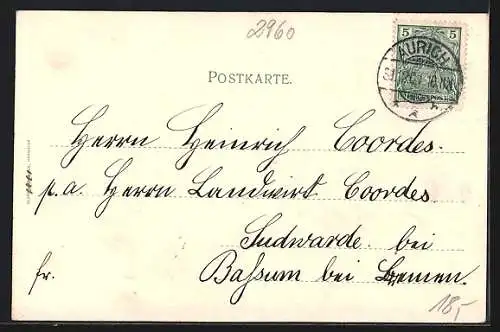 2960
5 5
AURICH
POSTKARTE.
Herrn Heinrich Coordes.
p.a. Herrn Landwirt Coordes
Sudwarde bei
fr. Bassum bei Bremen.
18,-